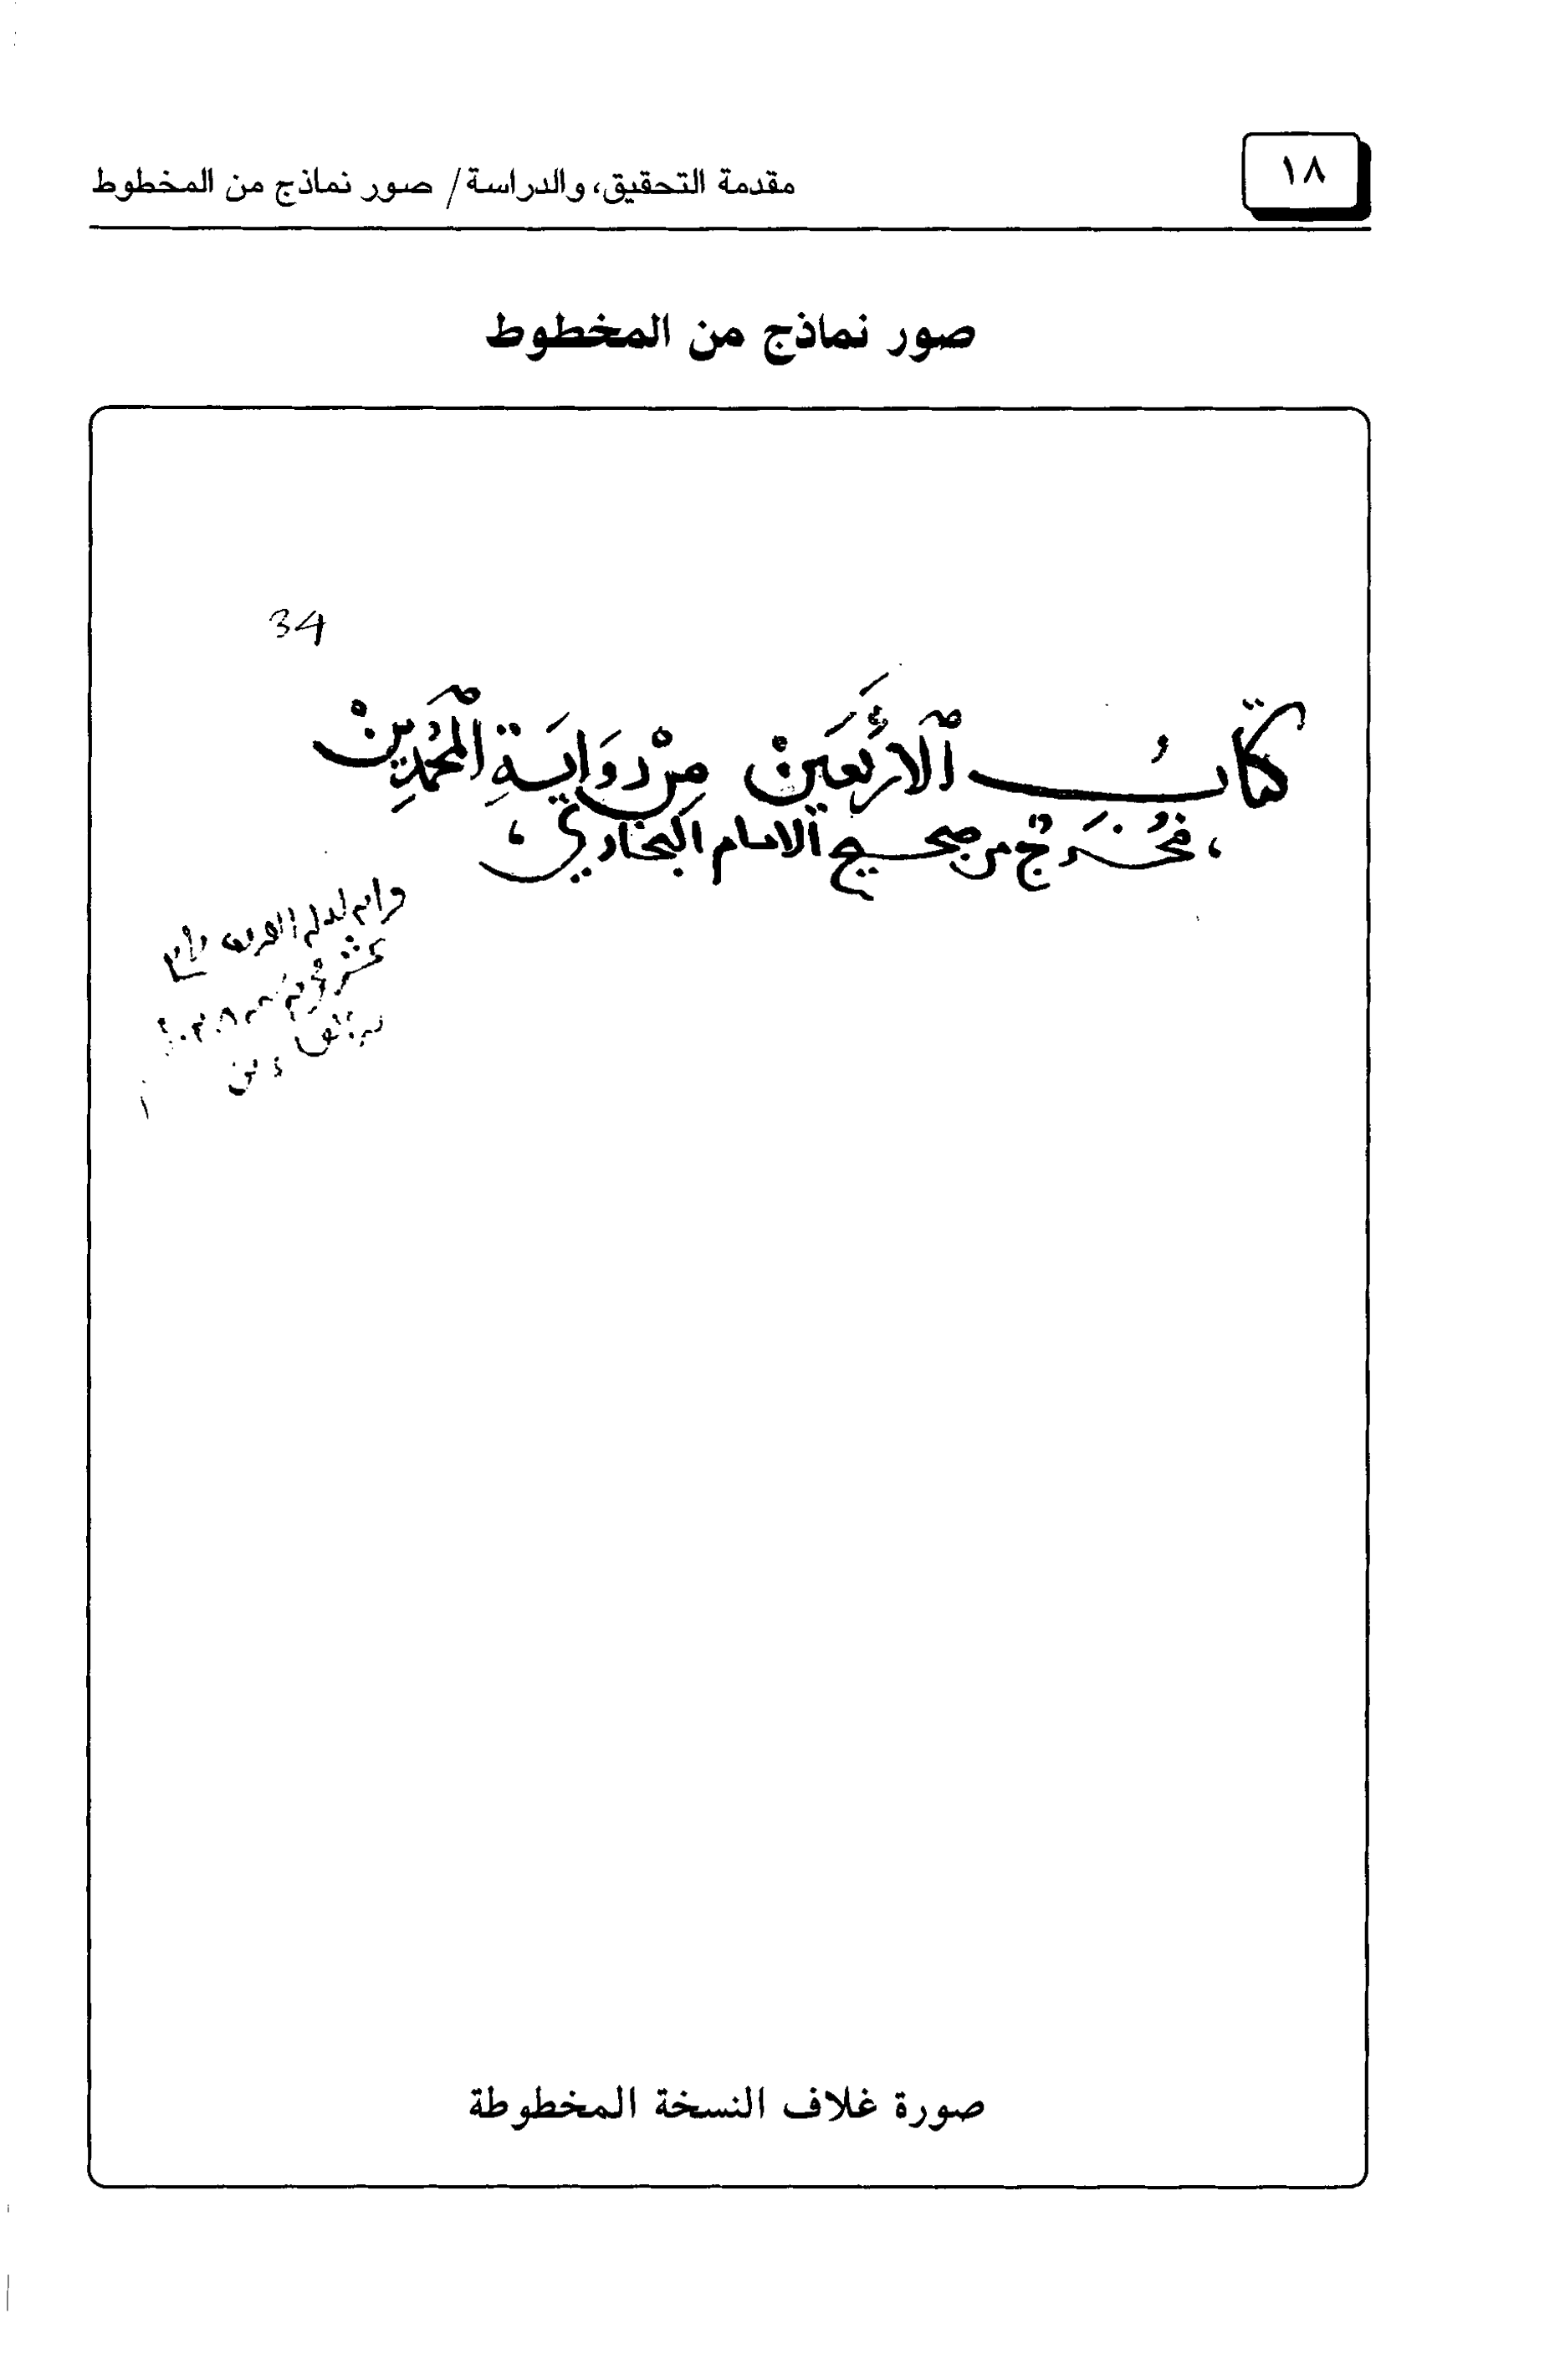 ١٨
مقدمة التحقيق، والدراسة/ صور نماذج من المخطوط
صور نماذج من المخطوط
34
كتابُ الأربَعَينْ مِنْ رِوَايَةِ المحمَّدِينْ
، مُخَرَّجٌ من صحيح الامام البخاري ،
صورة غلاف النسخة المخطوطة